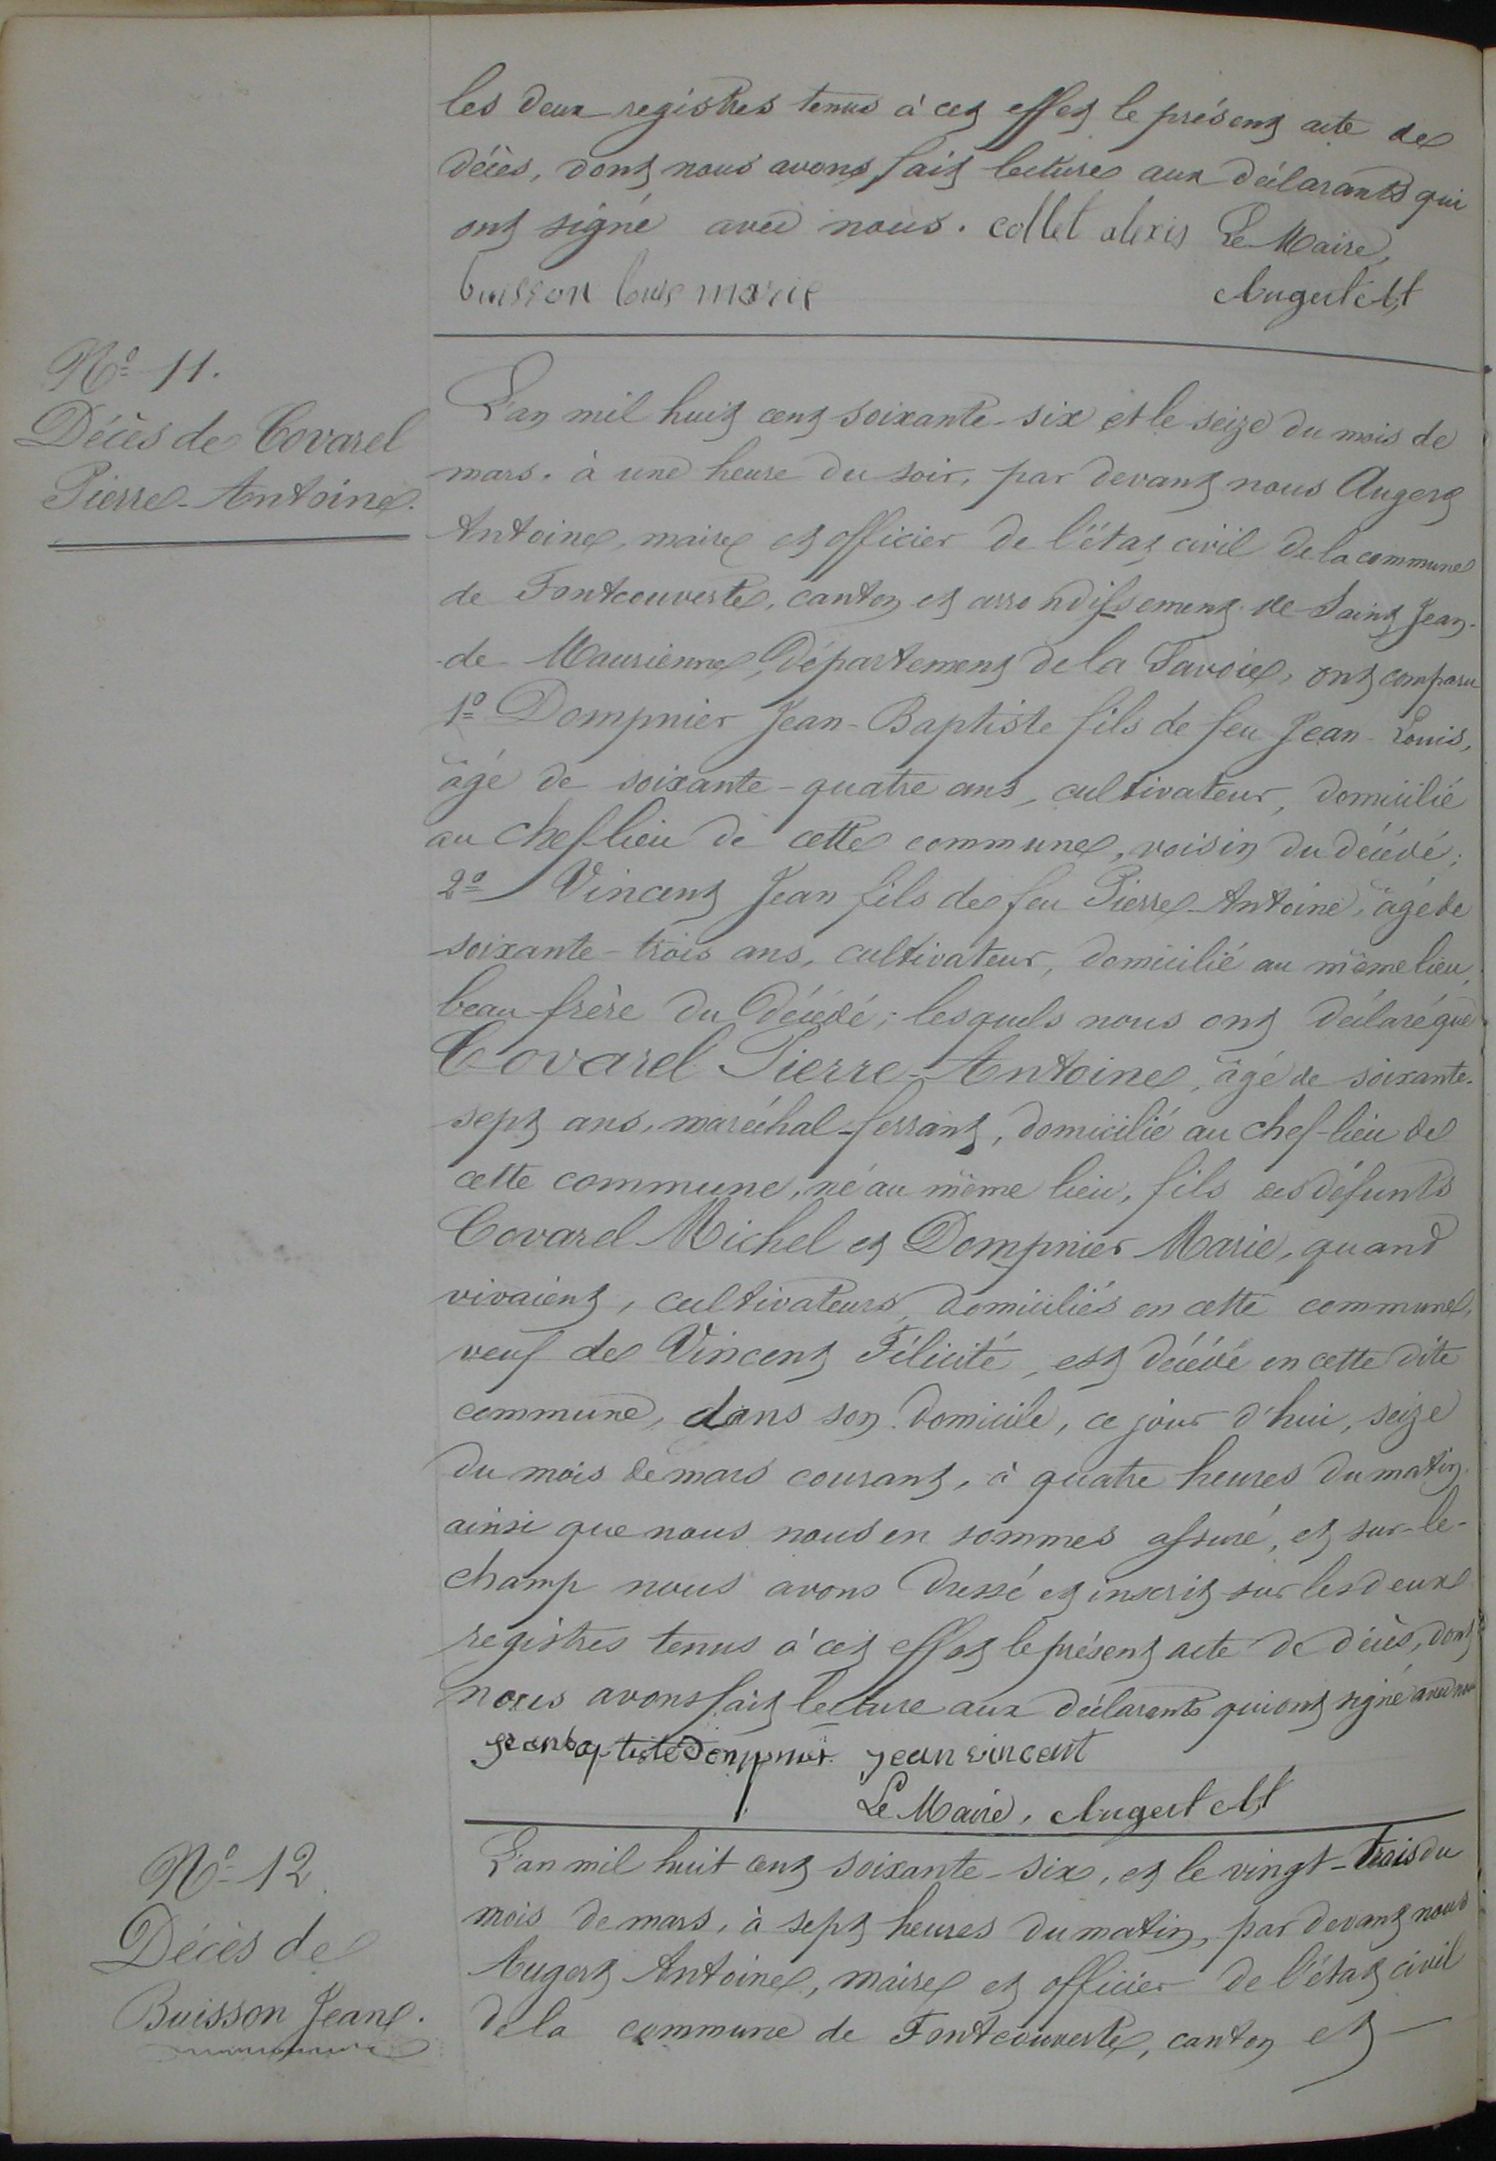 les deux registres tenus à cet effet le présent acte de
décès, dont nous avons fait lecture aux déclarants qui
ont signé avec nous. collet alexis Le Maire,
buisson louis marie Augert Ant
N° 11.
Décès de Covarel
Pierre-Antoine.
L'an mil huit cent soixante-six et le seize du mois de
mars. à une heure du soir, par devant nous Augert
Antoine, maire et officier de l'état civil de la commune
de Fontcouverte, canton et arrondissement de Saint Jean-
-de Maurienne, département de la Savoie, ont comparu
1° Dompnier Jean-Baptiste fils de feu Jean-Louis,
âgé de soixante-quatre ans, cultivateur, domicilié
au chef-lieu de cette commune, voisin du décédé;
2° Vincent Jean fils de feu Pierre-Antoine, âgé de
soixante-trois ans, cultivateur, domicilié au même lieu,
beau-frère du décédé; lesquels nous ont déclaré que
Covarel Pierre-Antoine, âgé de soixante-
sept ans, maréchal-ferrant, domicilié au chef-lieu de
cette commune, né au même lieu, fils des défunts
Covarel Michel et Dompnier Marie, quand
vivaient, cultivateurs, domiciliés en cette commune,
veuf de Vincent Félicité, est décédé en cette dite
commune, dans son domicile, ce jour d'hui, seize
du mois de mars courant, à quatre heures du matin.
ainsi que nous nous en sommes assuré, et sur-le-
champ nous avons dressé et inscrit sur les deux
registres tenus à cet effet le présent acte de décès, dont
nous avons fait lecture aux déclarants qui ont signé avec nous
jean baptiste dompnier jean vincent
Le Maire, Augert Ant
N° 12
Décès de
Buisson Jean.
L'an mil huit cent soixante-six, et le vingt-trois du
mois de mars, à sept heures du matin, par devant nous
Augert Antoine, maire et officier de l'état civil
de la commune de Fontcouverte, canton et